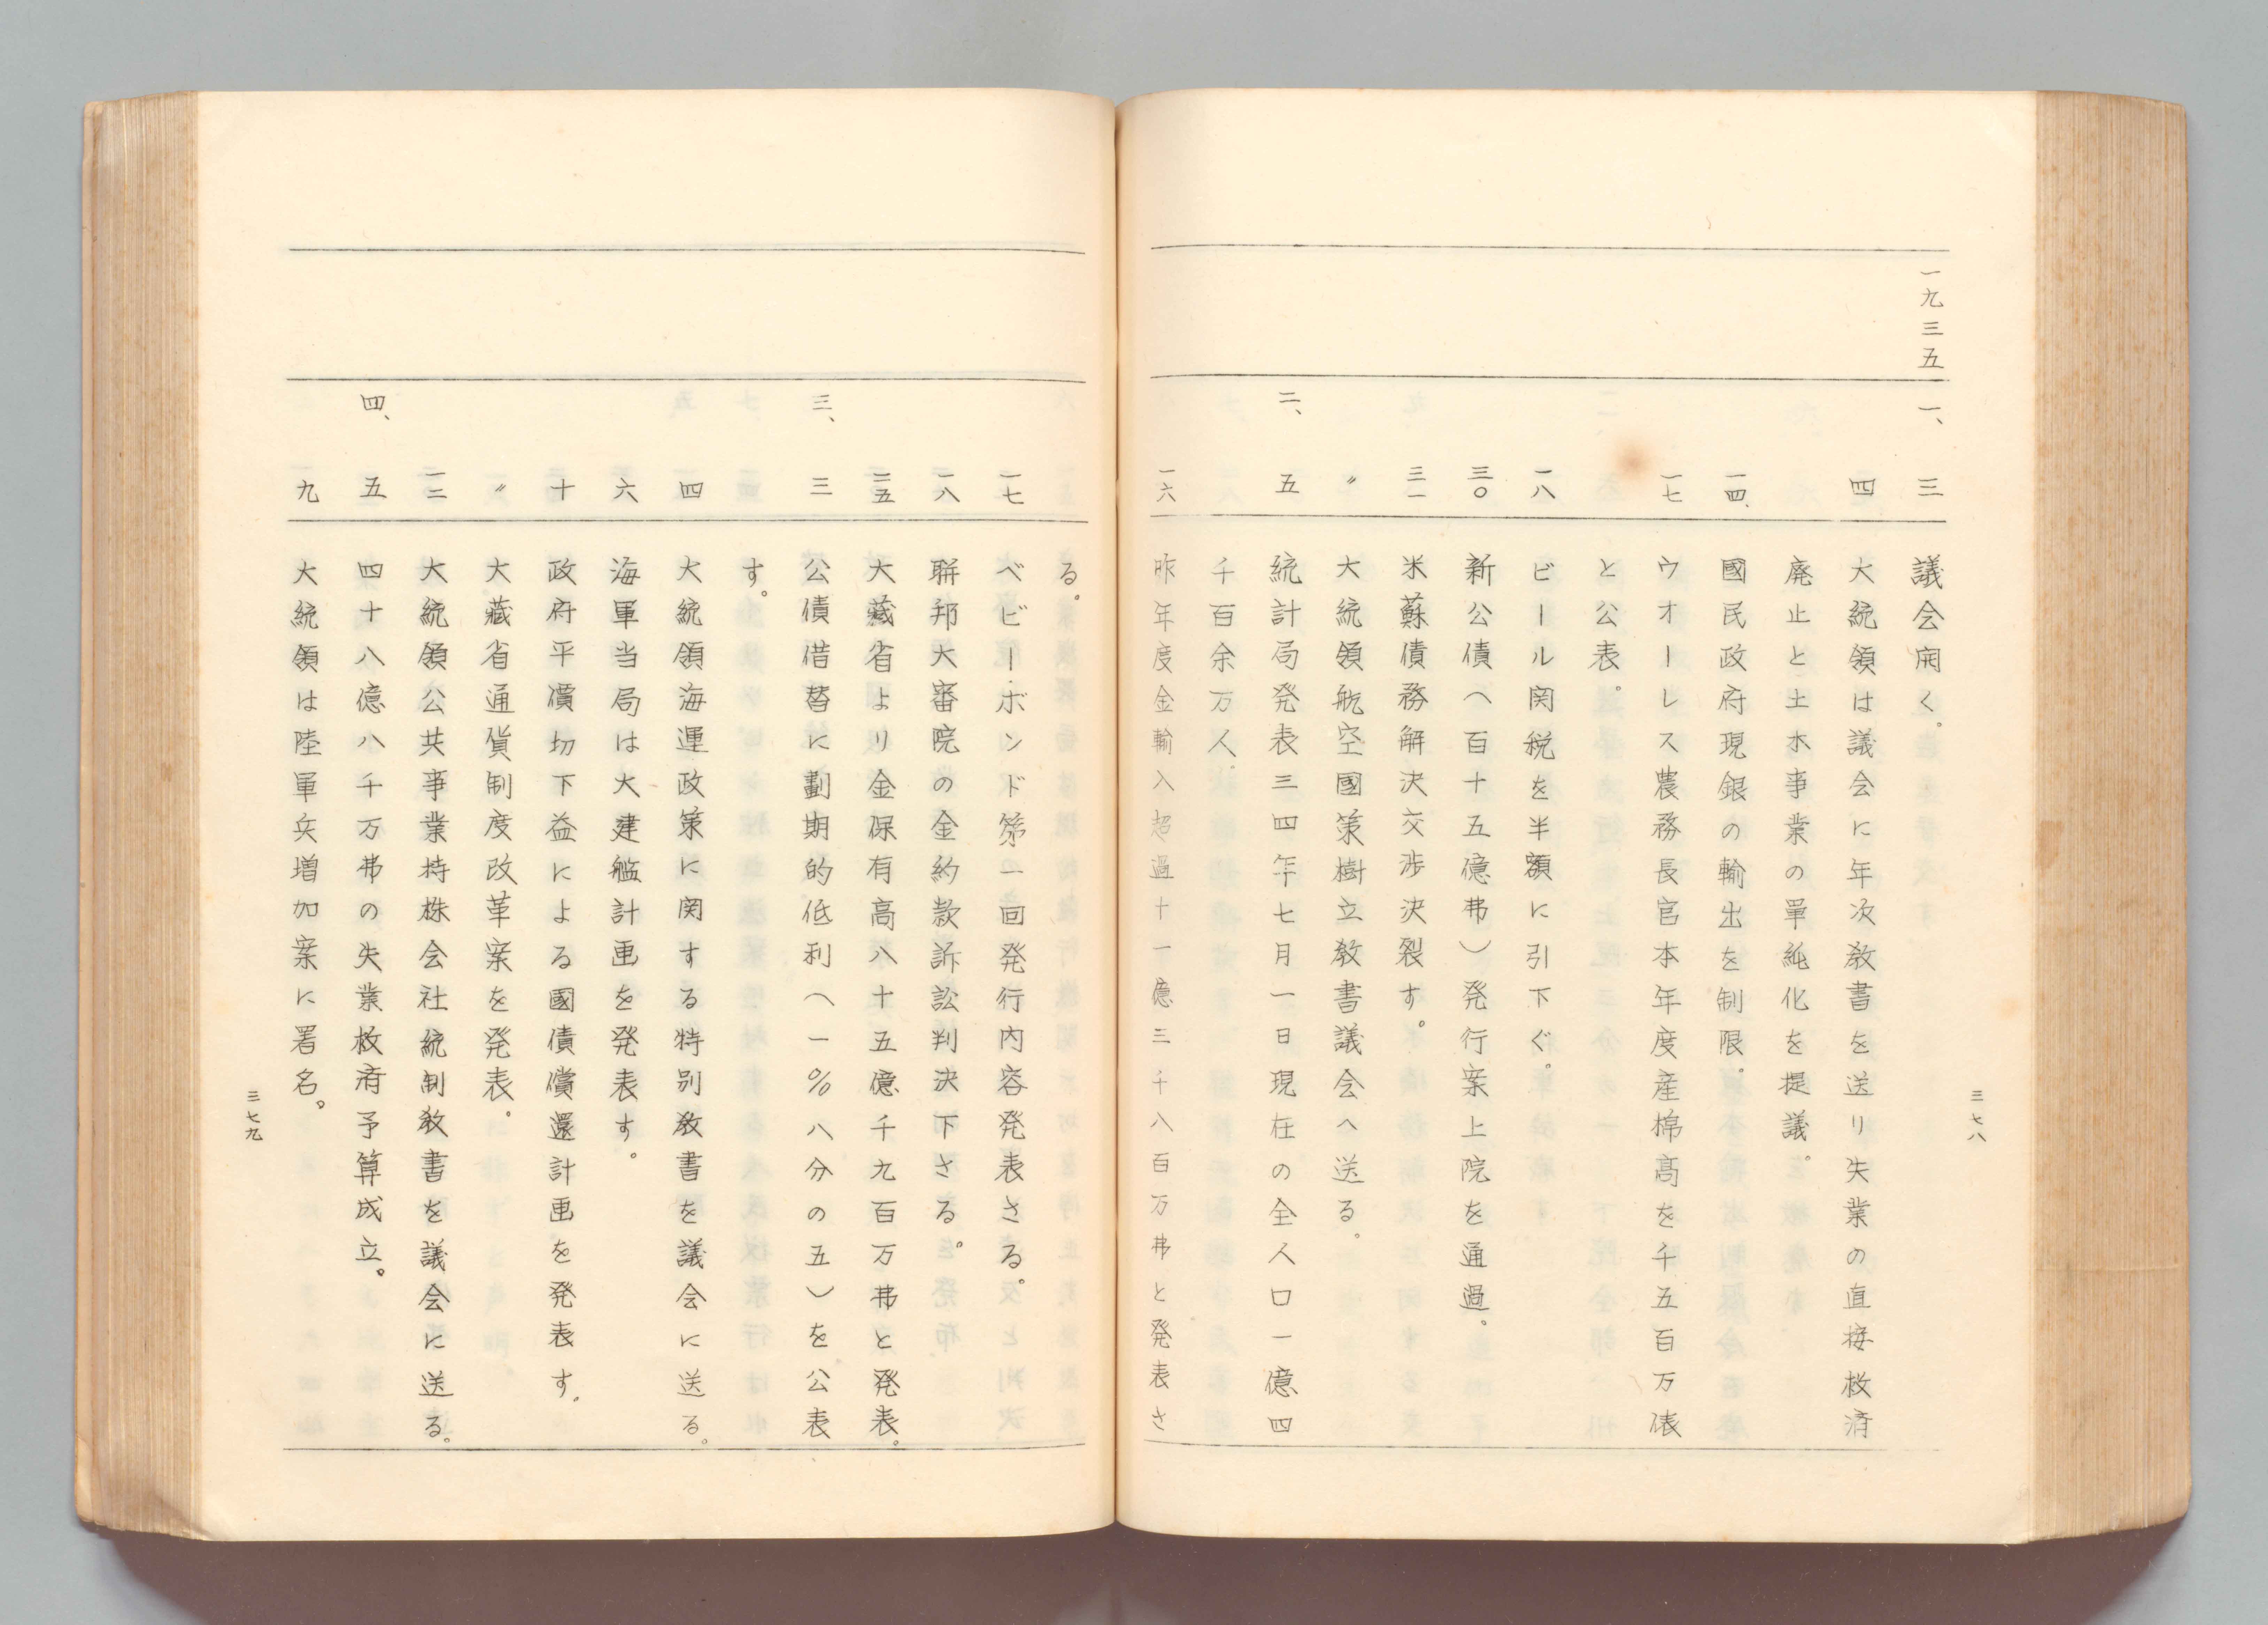 一九三五
一、 三 議会開く。
四 大統領は議会に年次教書を送り失業の直接救済
廃止と土木事業の單純化を提議。
一四、 國民政府現銀の輸出を制限。
一七 ウオーレス農務長官本年度産棉高を千五百万俵
と公表。
一八 ビール関税を半額に引下ぐ。
三〇 新公債(百十五億弗)発行案上院を通過。
三一 米蘇債務解決交渉決裂す。
〃 大統領航空國策樹立教書議会へ送る。
二、 五 統計局発表三四年七月一日現在の全人口一億四
千百余万人。
一六 昨年度金輸入超過十一億三千八百万弗と発表さ
三七八
る。
一七 ベビー・ボンド第一回発行内容発表さる。
一八 聯邦大審院の金約款訴訟判決下さる。
二五 大藏省より金保有高八十五億千九百万弗と発表。
三、 三 公債借替に劃期的低利(一%八分の五)を公表
す。
四 大統領海運政策に関する特別教書を議会に送る。
六 海軍当局は大建艦計画を発表す。
十 政府平價切下益による國債償還計画を発表す。
〃 大藏省通貨制度改革案を発表。
一二 大統領公共事業持株会社統制教書を議会に送る。
四、 五 四十八億八千万弗の失業救済予算成立。
一九 大統領は陸軍兵増加案に署名。
三七九